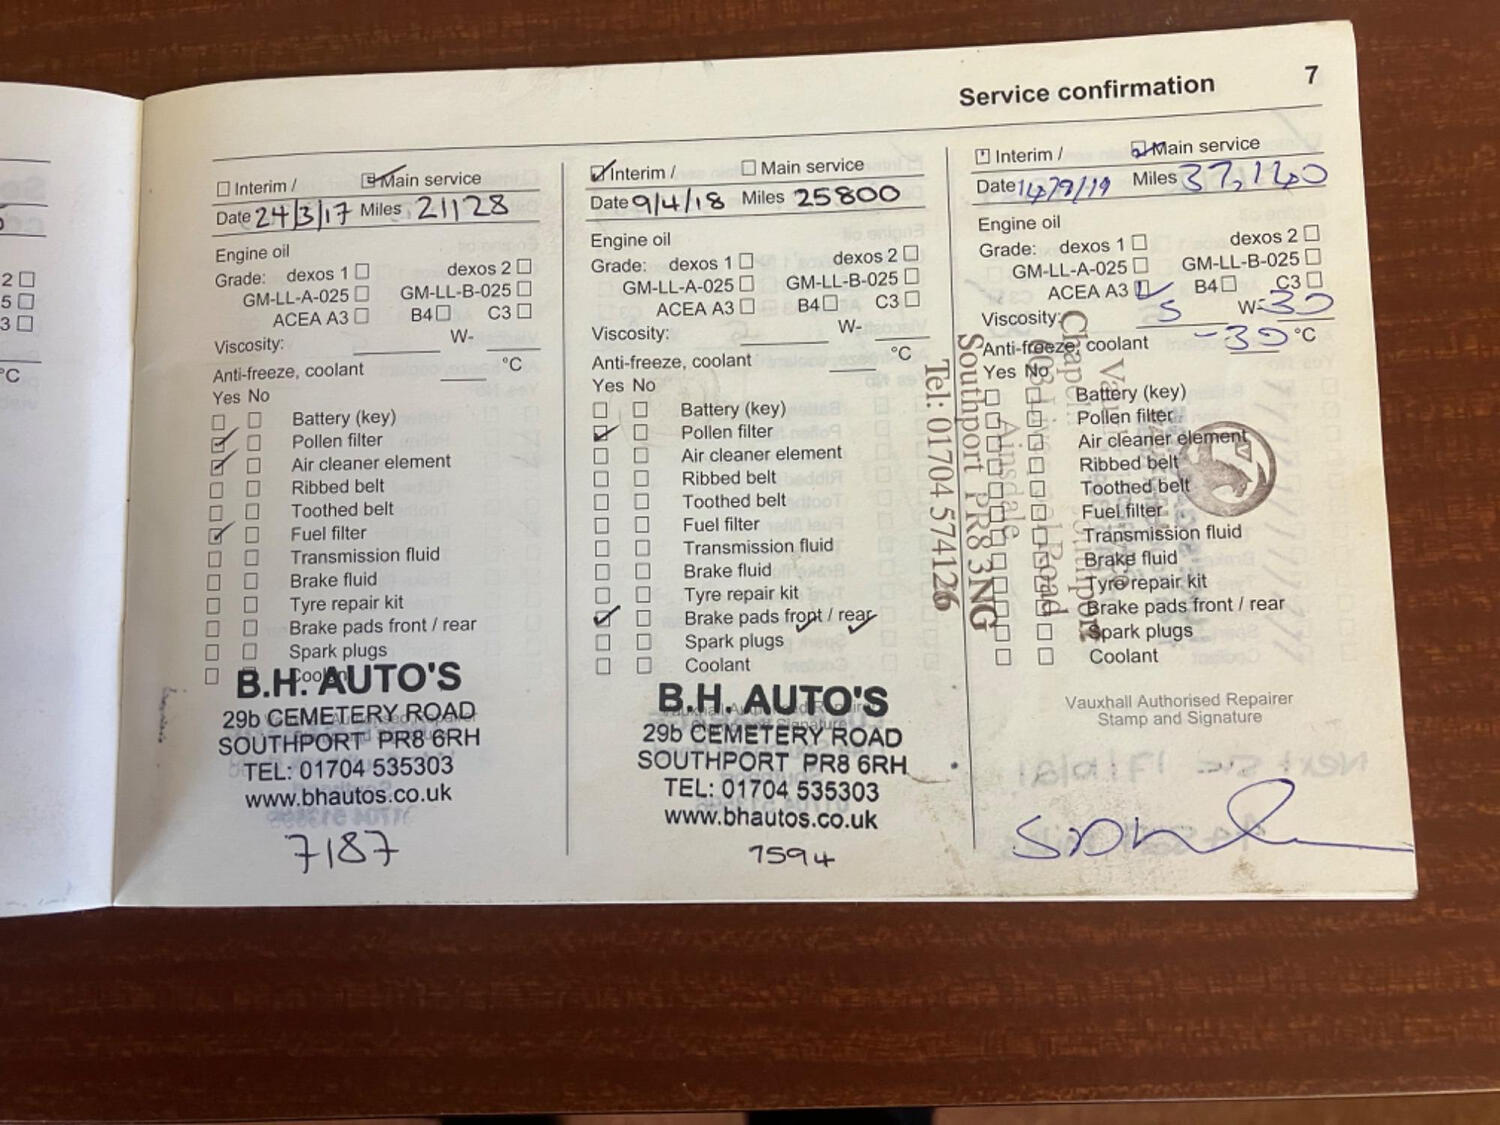 Service confirmation 7
Interim / Main service
Date 24/3/17 Miles 21128
Engine oil
Grade: dexos 1 dexos 2
GM-LL-A-025 GM-LL-B-025
ACEA A3 B4 C3
Viscosity: W-
Anti-freeze, coolant °C
Yes No
Battery (key)
Pollen filter
Air cleaner element
Ribbed belt
Toothed belt
Fuel filter
Transmission fluid
Brake fluid
Tyre repair kit
Brake pads front / rear
Spark plugs
Coolant
B.H. AUTO'S
29b CEMETERY ROAD
SOUTHPORT PR8 6RH
TEL: 01704 535303
www.bhautos.co.uk
7187
Interim / Main service
Date 9/4/18 Miles 25800
Engine oil
Grade: dexos 1 dexos 2
GM-LL-A-025 GM-LL-B-025
ACEA A3 B4 C3
Viscosity: W-
Anti-freeze, coolant °C
Yes No
Battery (key)
Pollen filter
Air cleaner element
Ribbed belt
Toothed belt
Fuel filter
Transmission fluid
Brake fluid
Tyre repair kit
Brake pads front / rear
Spark plugs
Coolant
B.H. AUTO'S
29b CEMETERY ROAD
SOUTHPORT PR8 6RH
TEL: 01704 535303
www.bhautos.co.uk
7594
Interim / Main service
Date Miles 37,140
Engine oil
Grade: dexos 1 dexos 2
GM-LL-A-025 GM-LL-B-025
ACEA A3 B4 C3
Viscosity: 5 W-30
Anti-freeze, coolant -30 °C
Yes No
Battery (key)
Pollen filter
Air cleaner element
Ribbed belt
Toothed belt
Fuel filter
Transmission fluid
Brake fluid
Tyre repair kit
Brake pads front / rear
Spark plugs
Coolant
Ainsdale
Southport PR8 3NG
Tel: 01704 574126
Vauxhall Authorised Repairer
Stamp and Signature